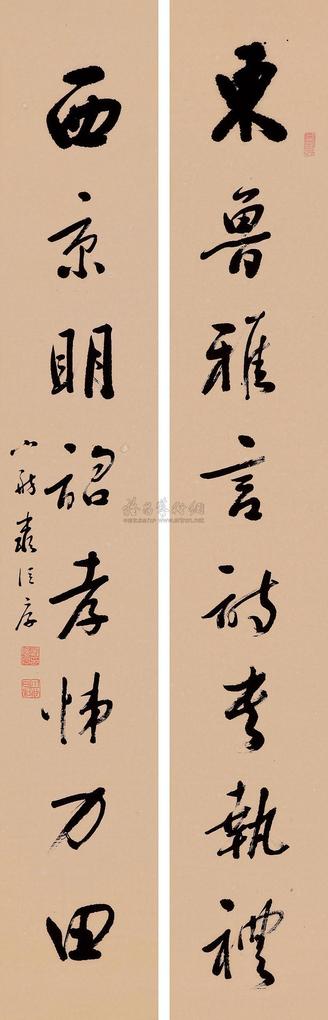 東魯雅言詩書執禮
西京明詔孝悌力田
小舫嚴信厚
雅昌藝術網